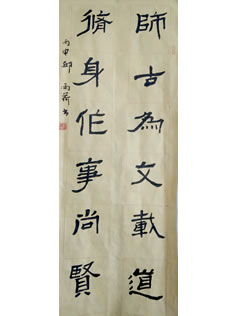 師古為文載道
脩身作事尚賢
丙申邱